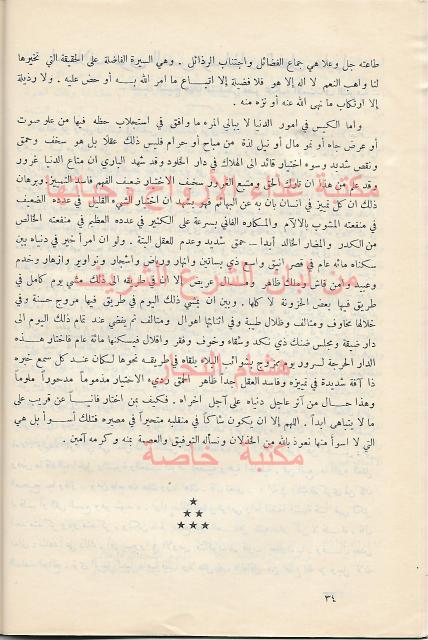 طاعته جل وعلا هي جماع الفضائل واجتناب الرذائل . وهي السيرة الفاضلة على الحقيقة التي تخيرها
لنا واهب النعم لا اله إلا هو فلا فضيلة إلا اتباع ما امر الله به أو حض عليه . ولا رذيلة
إلا ارتكاب ما نهى الله عنه أو نزه منه .
واما الكيس في امور الدنيا لا يبالي المرء ما وافق في استجلاب حظه فيها من علو صوت
أو عرض جاه أو نمو مال أو نيل لذة من مباح أو حرام فليس ذلك عقلا بل هو سخف وحمق
ونقص شديد وسوء اختيار قائد الى الهلاك في دار الخلود وقد شهد الباري ان متاع الدنيا غرور
وقد علم من هذا ان تارك الحق ومتبع الغرور سخيف الاختيار ضعيف العقل فاسد التمييز وبرهان
ذلك ان كل تميز في انسان بان به عن البهائم فهو يشهد ان اختيار الشيء القليل في عدده الضعيف
في منفعته المشوب بالآلام والمكاره الفاني بسرعة على الكثير في عدده العظيم في منفعته الخالص
من الكدر والمضار الخالد أبدا - حمق شديد وعدم للعقل البتة . ولو ان امرأ خير في دنياه بين
سكناه مائة عام في قصر انيق واسع ذي بساتين وانهار ورياض واشجار ونواوير وازهار وخدم
وعبيد وأمن فاش وملك ظاهر ومال عريض إلا ان في طريقه الى ذلك مشي يوم كامل في
طريق فيها بعض الحزونة لا كلها . وبين ان يمشي ذلك اليوم في طريق فيها مروج حسنة وفي
خلالها مخاوف ومتالف وظلال طيبة وفي اثنائها اهوال ومتالف ثم يفضي عند تمام ذلك اليوم الى
دار ضيقة ومجلس ضنك ذي نكد وشقاء وخوف وفقر واقلال فيسكنها مائة عام فاختار هذه
الدار الحرجة لسرور يوم ممزوج بشوائب البلاء يلقاه في طريقه نحوها لكان عند كل سمع خبره
ذا آفة شديدة في تمييزه وفاسد العقل جدا ظاهر الحمق رديء الاختيار مذموما مدحورا ملوما
وهذا حال من آثر عاجل دنياه على آجل اخراه . فكيف بمن اختار فانيا عن قريب على
ما لا يتناهى ابدا . اللهم إلا ان يكون شاكا في منقلبه متحيرا في مصيره فتلك أسوأ بل هي
التي لا اسوأ منها نعوذ بالله من الخذلان ونسأله التوفيق والعصمة بمنه وكرمه آمين .
مكتبة غذاء الأرواح وحياتها
من لبان الشرع الشريف
هشام النجار
مكتبة خاصة
٣٤